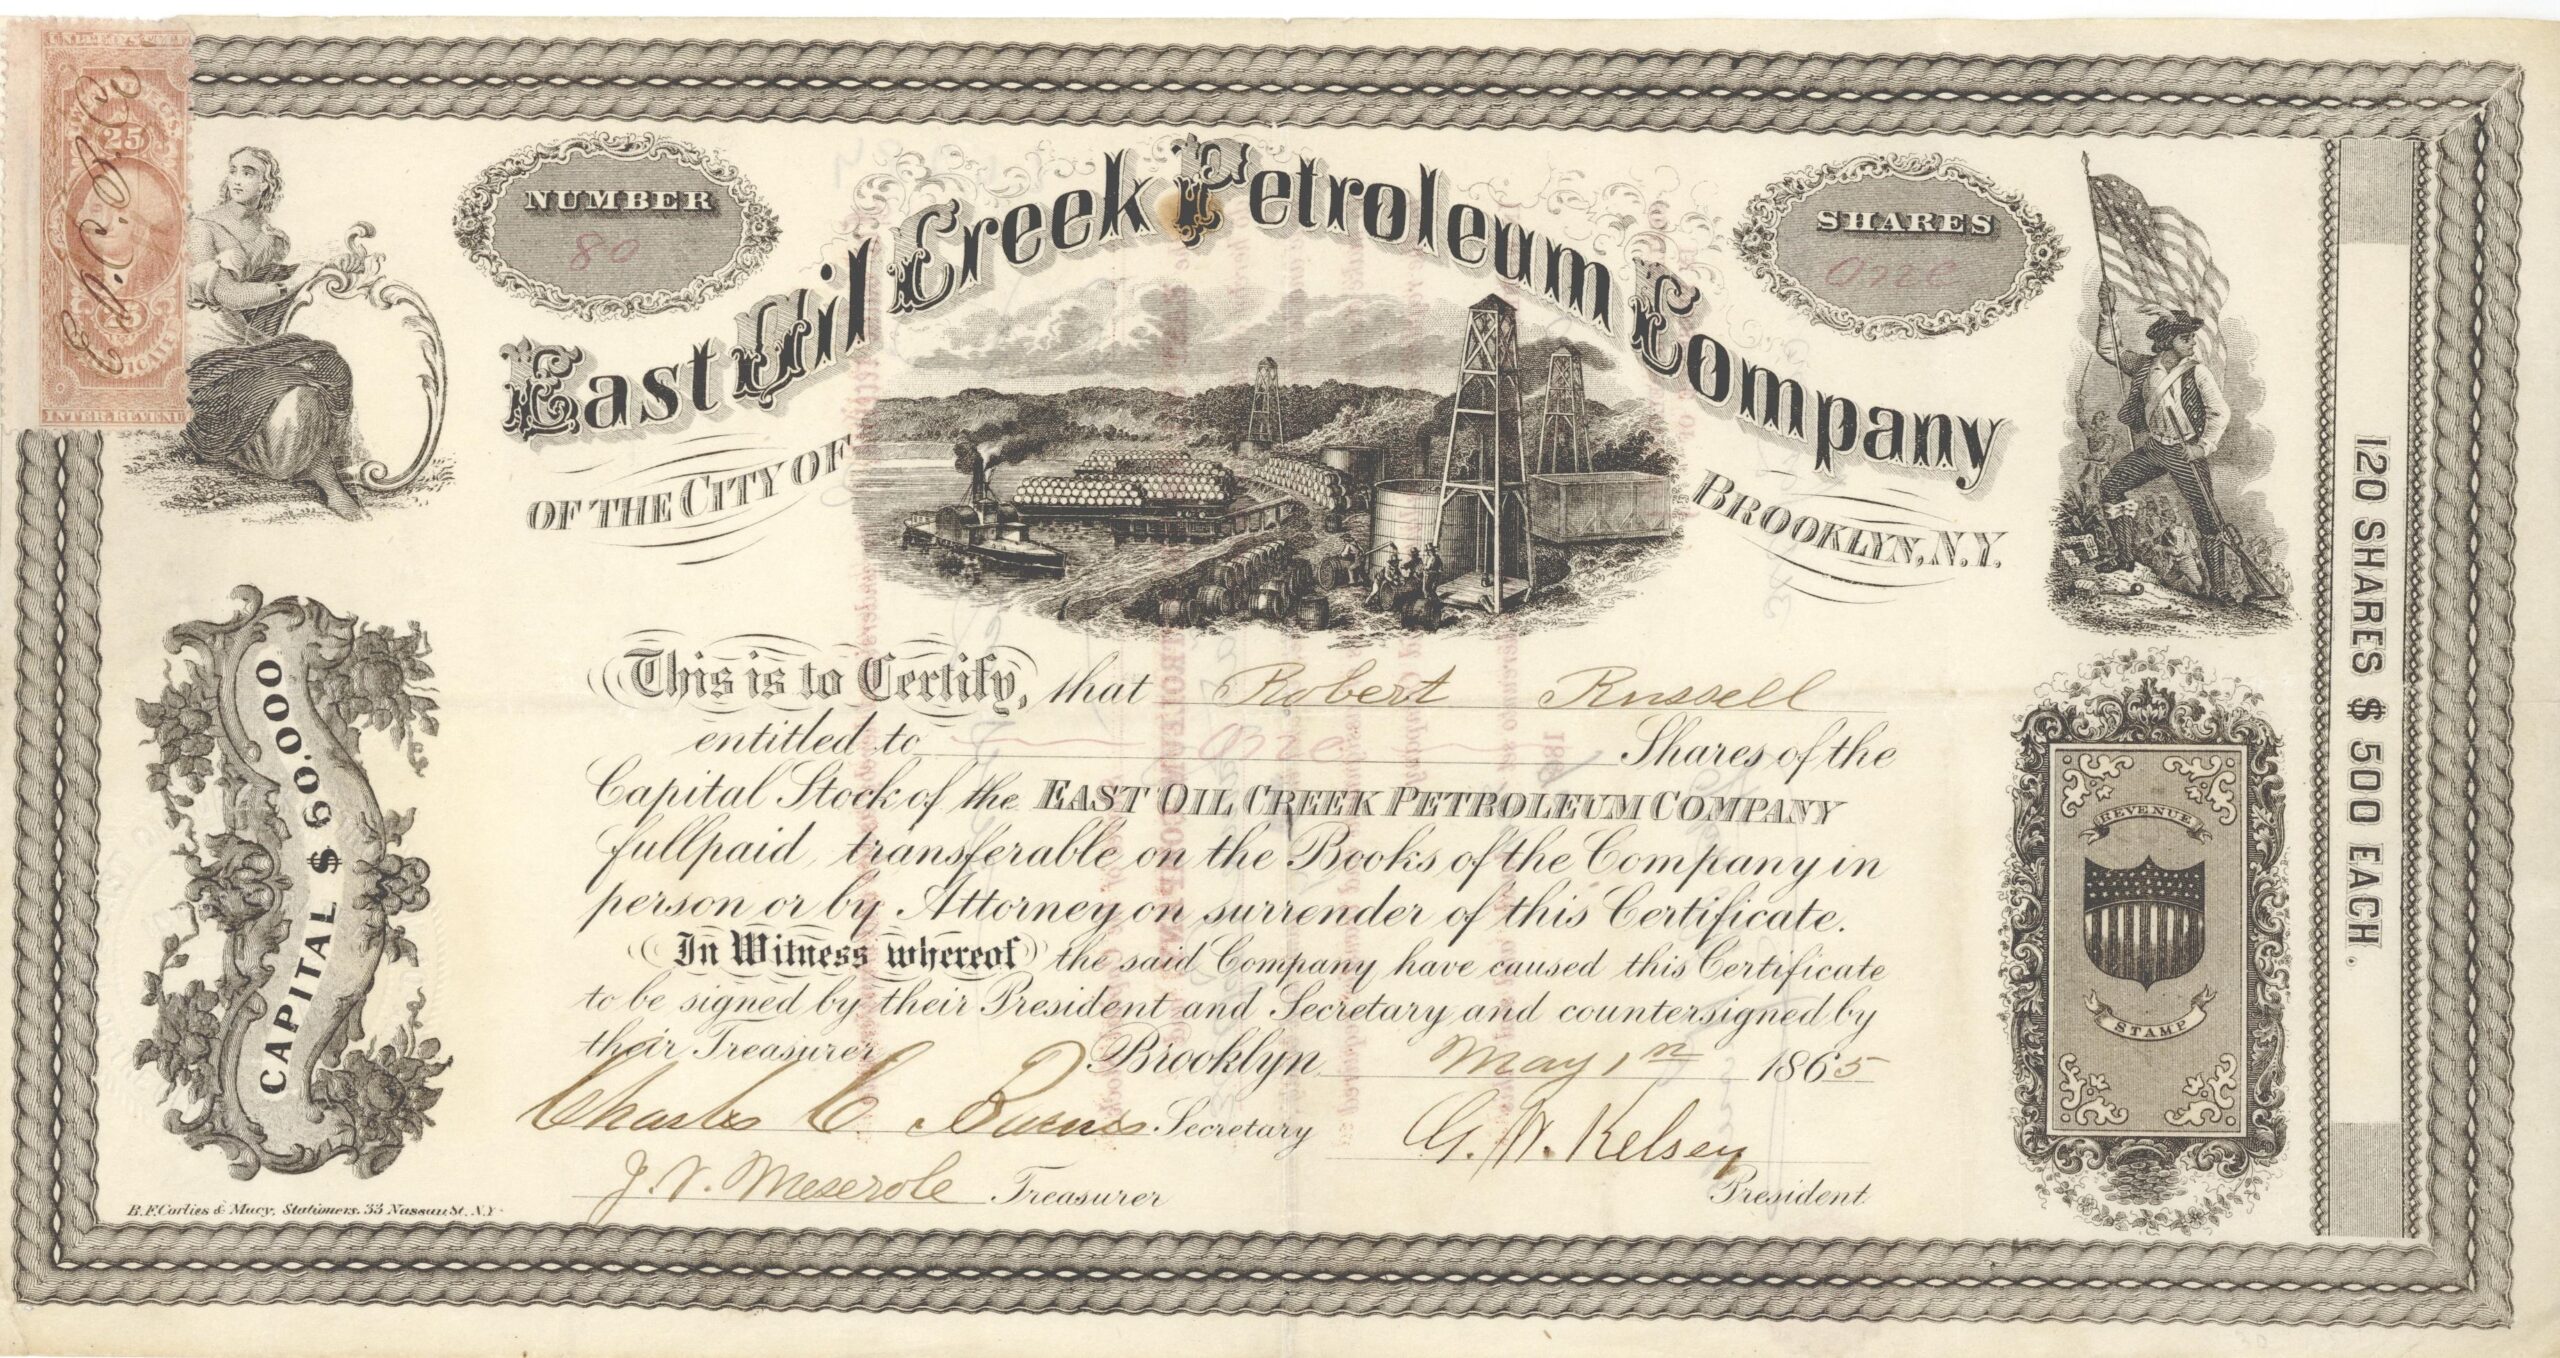 UNITED STATES
25
TWENTY FIVE CENTS
25
CERTIFICATE
INTER. REVENUE
E. O. C. P. Co
NUMBER
80
East Oil Creek Petroleum Company
SHARES
One
OF THE CITY OF
BROOKLYN, N.Y.
120 SHARES $ 500 EACH.
CAPITAL $ 60.000
This is to Certify, that Robert Russell
entitled to One Shares of the
Capital Stock of the EAST OIL CREEK PETROLEUM COMPANY
fullpaid, transferable on the Books of the Company in
person or by Attorney on surrender of this Certificate.
In Witness whereof the said Company have caused this Certificate
to be signed by their President and Secretary and countersigned by
their Treasurer Brooklyn May 1st 1865
Charles C. Secretary
G. W. Kelsey
J. V. Meserole Treasurer
President
REVENUE
STAMP
B. F. Corlies & Macy, Stationers. 33 Nassau St. N.Y.